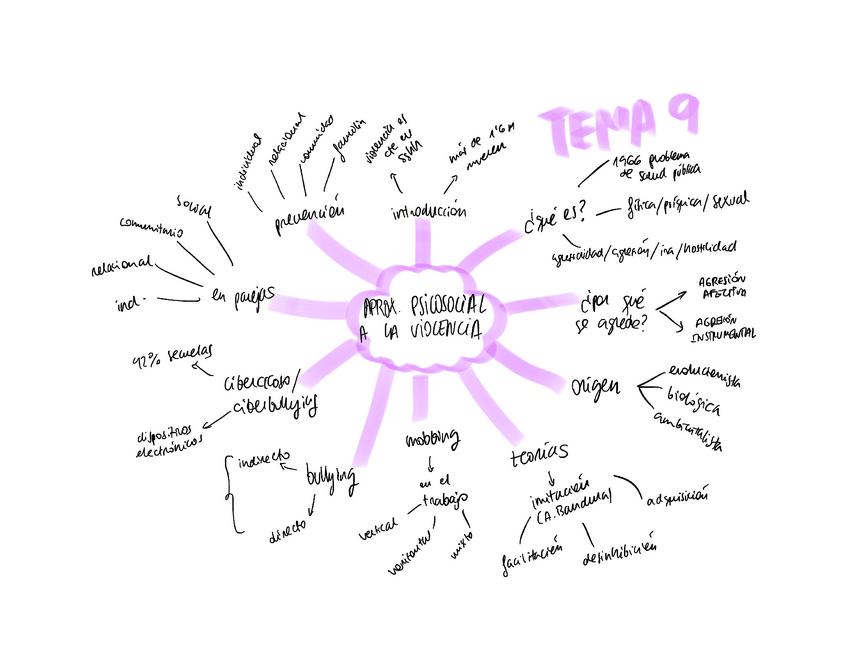 TEMA 9
APROX. PSICOSOCIAL
A LA VIOLENCIA
introducción
violencia es
cte en
más de 1'6 M
mueren
¿qué es?
1966 problema
de salud pública
física/psíquica/sexual
agresividad/agresión/ira/hostilidad
¿por qué
se agrede?
AGRESIÓN
AFECTIVA
AGRESIÓN
INSTRUMENTAL
origen
evolucionista
biológica
ambientalista
teorías
imitación
(A. Bandura)
adquisición
desinhibición
facilitación
mobbing
en el
trabajo
vertical
horizontal
mixto
bullying
indirecto
directo
ciberacoso/
ciberbullying
42% secuelas
dispositivos
electrónicos
en parejas
social
comunitario
relacional
ind.
prevención
individual
relacional
comunidad
familia